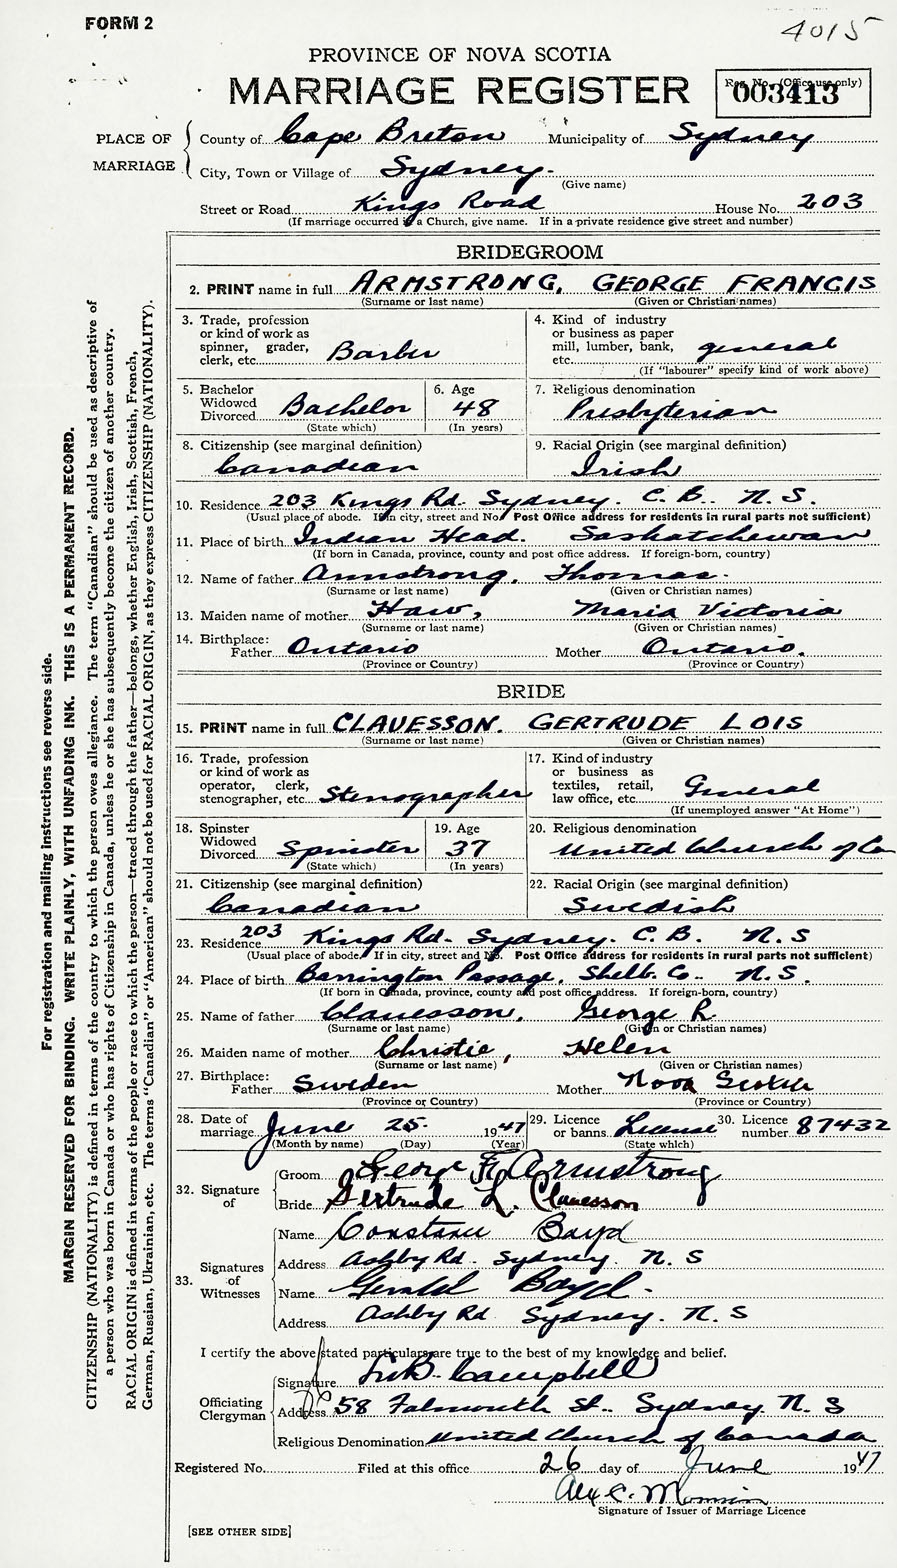 FORM 2
4015
PROVINCE OF NOVA SCOTIA
MARRIAGE REGISTER
Reg. No. (Office use only)
003413
PLACE OF MARRIAGE
County of Cape Breton Municipality of Sydney
City, Town or Village of Sydney.
(Give name)
Street or Road Kings Road House No. 203
(If marriage occurred in a Church, give name. If in a private residence give street and number)
BRIDEGROOM
2. PRINT name in full ARMSTRONG, GEORGE FRANCIS
(Surname or last name) (Given or Christian names)
3. Trade, profession or kind of work as spinner, grader, clerk, etc. Barber
4. Kind of industry or business as paper mill, lumber, bank, etc. general
(If "labourer" specify kind of work above)
5. Bachelor Widowed Divorced Bachelor
(State which)
6. Age 48
(In years)
7. Religious denomination
Presbyterian
8. Citizenship (see marginal definition)
Canadian
9. Racial Origin (see marginal definition)
Irish
10. Residence 203 Kings Rd. Sydney. C. B. N. S.
(Usual place of abode. If in city, street and No. Post Office address for residents in rural parts not sufficient)
11. Place of birth Indian Head. Saskatchewan
(If born in Canada, province, county and post office address. If foreign-born, country)
12. Name of father Armstrong, Thomas.
(Surname or last name) (Given or Christian names)
13. Maiden name of mother Haw, Maria Victoria
(Surname or last name) (Given or Christian names)
14. Birthplace:
Father Ontario Mother Ontario.
(Province or Country) (Province or Country)
BRIDE
15. PRINT name in full CLAUESSON. GERTRUDE LOIS
(Surname or last name) (Given or Christian names)
16. Trade, profession or kind of work as operator, clerk, stenographer, etc. Stenographer
17. Kind of industry or business as textiles, retail, law office, etc. General
(If unemployed answer "At Home")
18. Spinster Widowed Divorced Spinster
(State which)
19. Age 37
(In years)
20. Religious denomination
United Church of Ca
21. Citizenship (see marginal definition)
Canadian
22. Racial Origin (see marginal definition)
Swedish
23. Residence 203 Kings Rd. Sydney. C. B. N. S
(Usual place of abode. If in city, street and No. Post Office address for residents in rural parts not sufficient)
24. Place of birth Barrington Passage, Shelb. Co. N. S.
(If born in Canada, province, county and post office address. If foreign-born, country)
25. Name of father Clauesson, George R.
(Surname or last name) (Given or Christian names)
26. Maiden name of mother Christie, Helen
(Surname or last name) (Given or Christian names)
27. Birthplace:
Father Sweden Mother Nova Scotia
(Province or Country) (Province or Country)
28. Date of marriage June 25. 1947
(Month by name) (Day) (Year)
29. Licence or banns License
(State which)
30. Licence number 87432
32. Signature of
Groom George F. Armstrong
Bride Gertrude L. Clauesson
33. Signatures of Witnesses
Name Constance Boyd
Address Ashby Rd. Sydney. N. S
Name Gerald Boyd.
Address Ashby Rd Sydney. N. S
I certify the above stated particulars are true to the best of my knowledge and belief.
Officiating Clergyman
Signature Campbell
Address 58 Falmouth St. Sydney. N. S
Religious Denomination United Church of Canada
Registered No. Filed at this office 26 day of June 1947
Alex C.
Signature of Issuer of Marriage Licence
[SEE OTHER SIDE]
For registration and mailing instructions see reverse side.
MARGIN RESERVED FOR BINDING. WRITE PLAINLY, WITH UNFADING INK. THIS IS A PERMANENT RECORD.
CITIZENSHIP (NATIONALITY) is defined in terms of the country to which the person owes allegiance. The term "Canadian" should be used as descriptive of
a person who was born in Canada or who has rights of Citizenship in Canada, unless he or she has subsequently become the citizen of another country.
RACIAL ORIGIN is defined in terms of the people or race to which the person—traced through the father—belongs, whether English, Irish, Scottish, French,
German, Russian, Ukrainian, etc. The terms "Canadian" or "American" should not be used for RACIAL ORIGIN, as they express CITIZENSHIP (NATIONALITY).